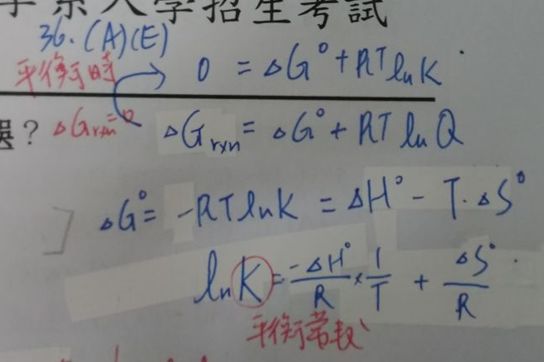 學系入學招生考試
36. (A)(E)
平衡時 0 = ΔG° + RT ln K
? ΔGrxn=0 ΔGrxn = ΔG° + RT ln Q
ΔG° = -RT ln K = ΔH° - T·ΔS°
ln K = -ΔH°/R × 1/T + ΔS°/R
平衡常數